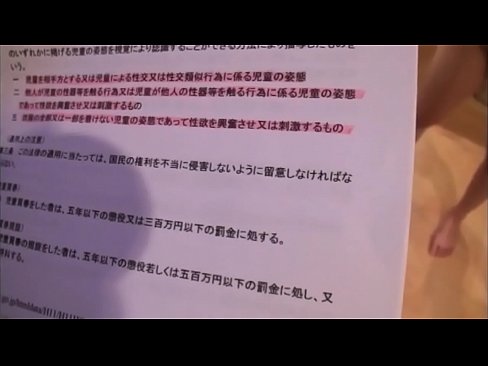 のいずれかに掲げる児童の姿態を視覚により認識することができる方法により描写したものを
いう。
一 児童を相手方とする又は児童による性交又は性交類似行為に係る児童の姿態
二 他人が児童の性器等を触る行為又は児童が他人の性器等を触る行為に係る児童の姿態
であって性欲を興奮させ又は刺激するもの
三 衣服の全部又は一部を着けない児童の姿態であって性欲を興奮させ又は刺激するもの
(適用上の注意)
第三条 この法律の適用に当たっては、国民の権利を不当に侵害しないように留意しなければな
らない。
児童買春)
児童買春をした者は、五年以下の懲役又は三百万円以下の罰金に処する。
買春周旋)
児童買春の周旋をした者は、五年以下の懲役若しくは五百万円以下の罰金に処し、又
併科する。